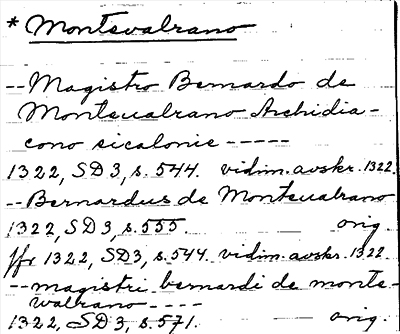 * Montevalrano
-- Magistro Bernardo de
Monteualrano Archidia-
cono sicalonie -----
1322, SD3, s. 544. vidim. avskr. 1322.
-- Bernardus de Monteualrano
1322, SD3, s. 555. orig.
jfr 1322, SD3, s. 544 vidim. avskr. 1322
-- magistri bernardi de monte-
walrano ----
1322, SD3, s. 571. orig.